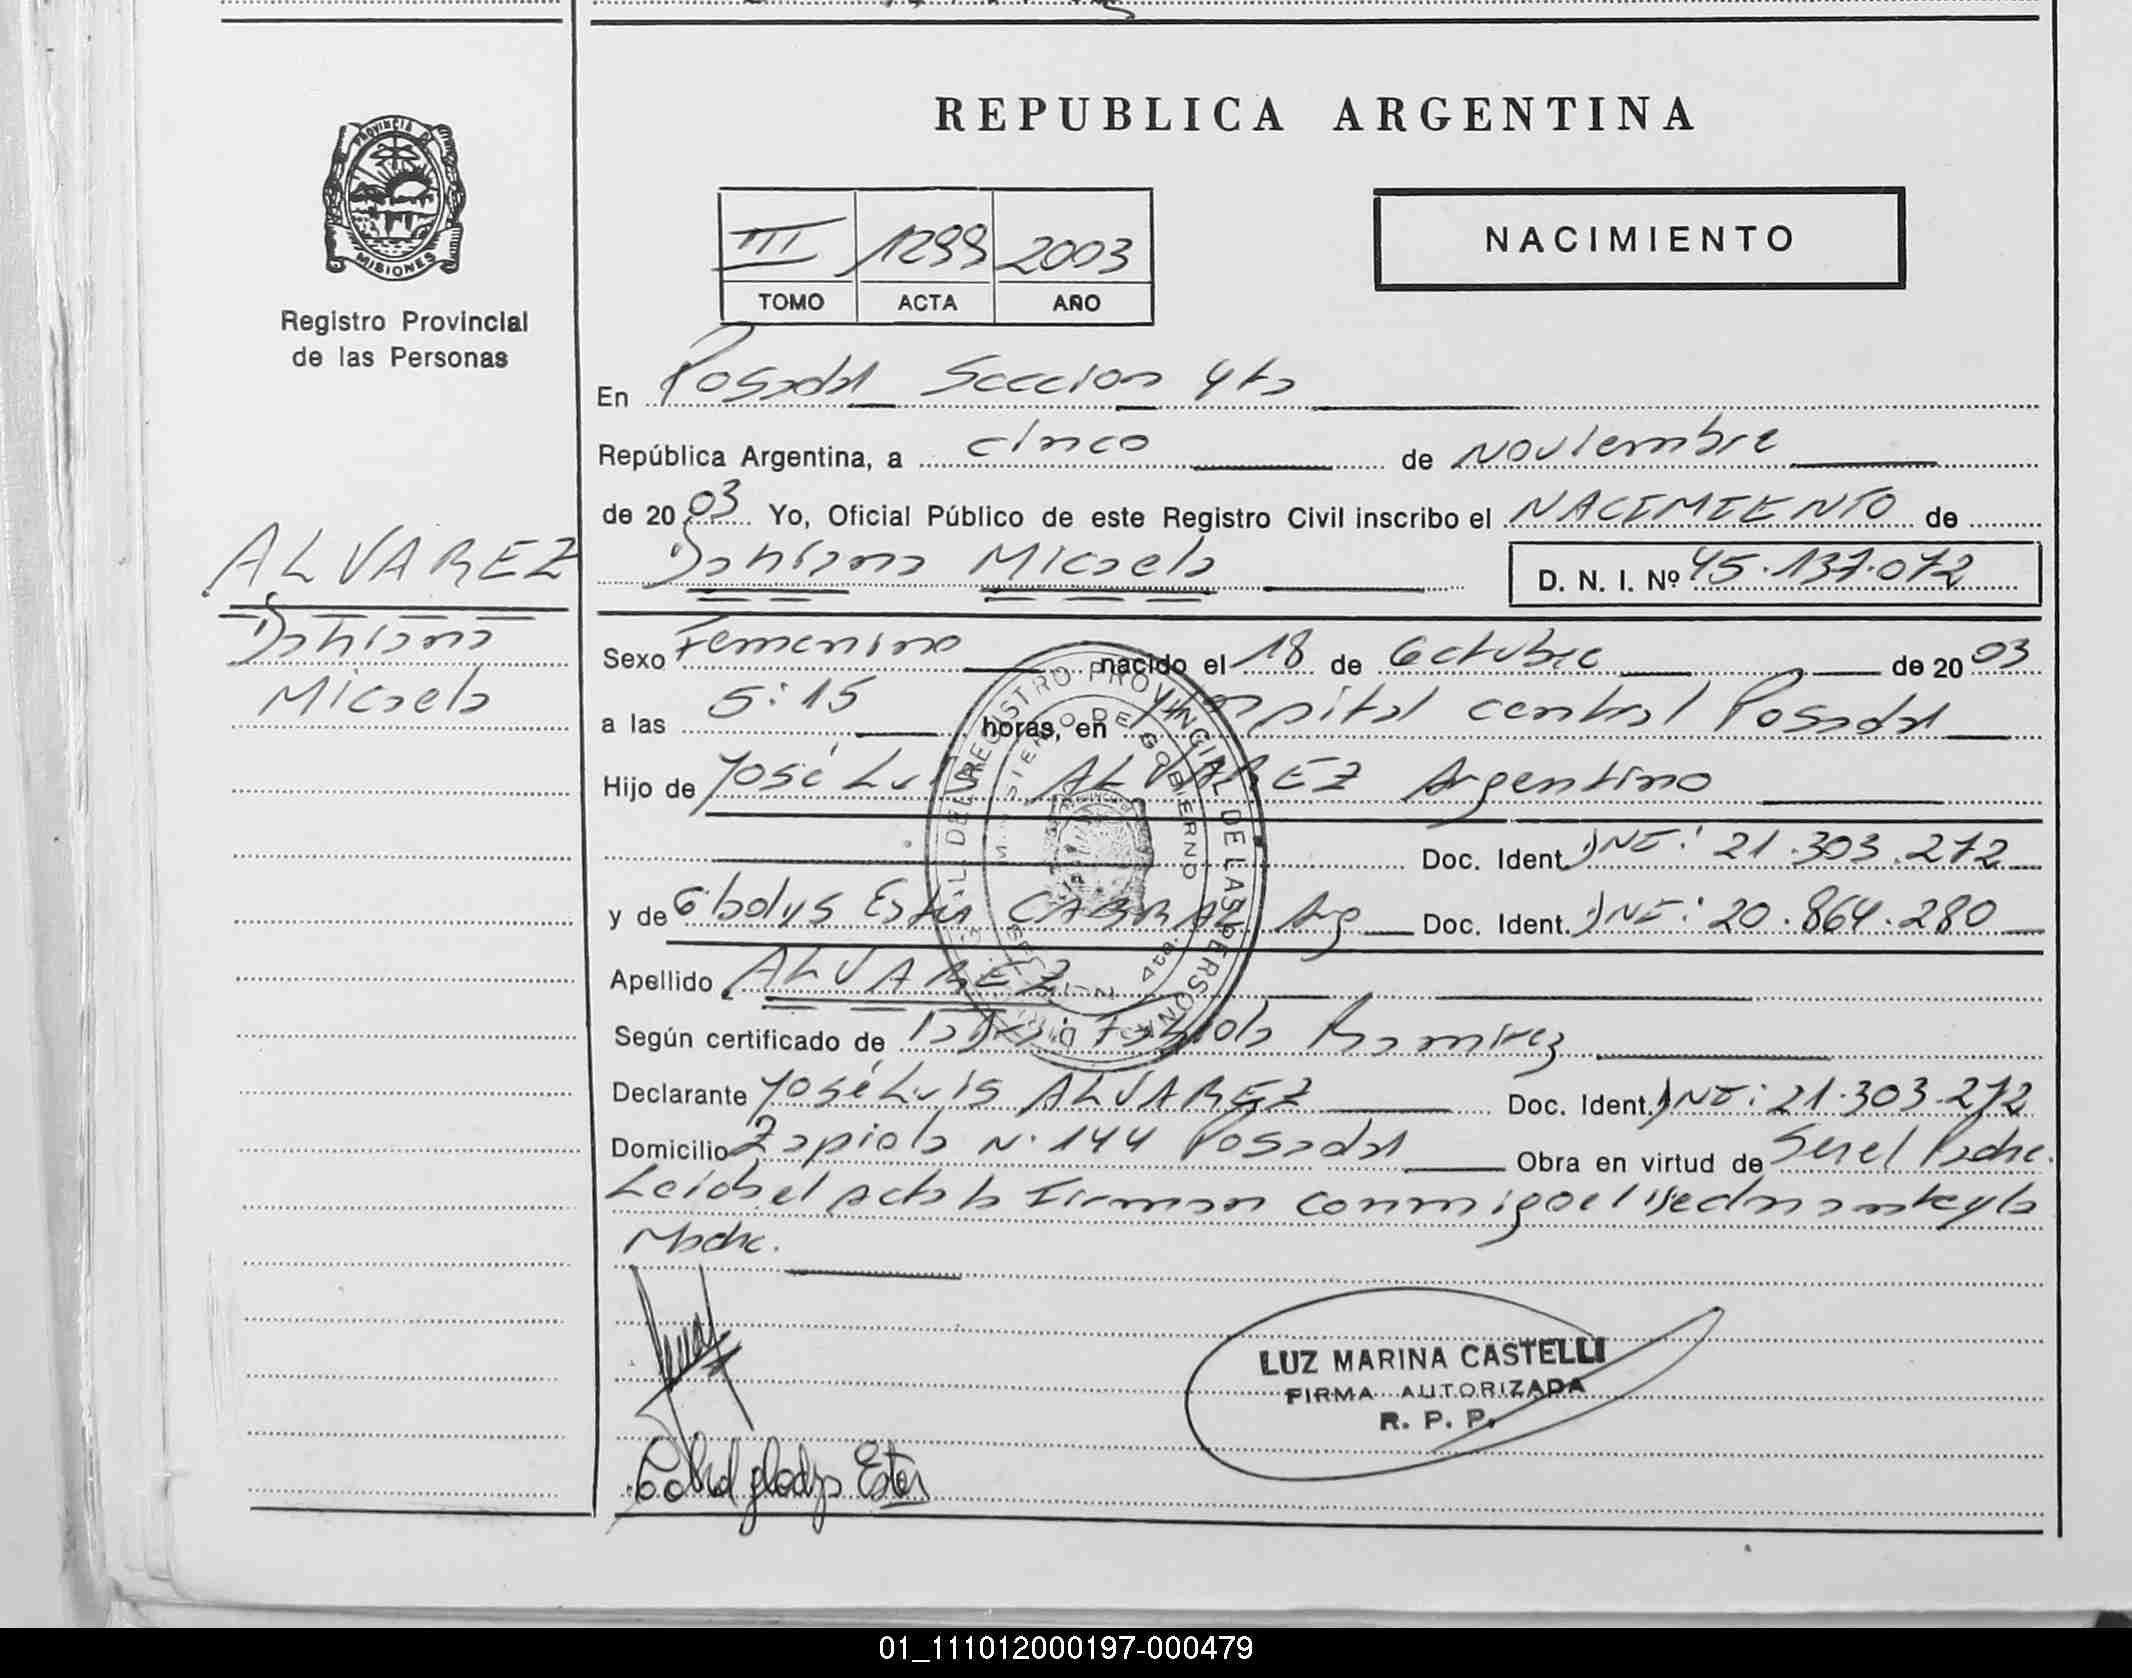 REPUBLICA ARGENTINA
PROVINCIA DE
MISIONES
Registro Provincial
de las Personas
III 1299 2003
TOMO ACTA AÑO
NACIMIENTO
En Posadas Seccion 4ta
República Argentina, a cinco de Noviembre
de 2003 Yo, Oficial Público de este Registro Civil inscribo el NACIMIENTO de
Dahiana Micaela D. N. I. Nº 45.137.072
ALVAREZ
Dahiana
Micaela
Sexo Femenino nacido el 18 de Octubre de 2003
a las 5:15 horas, en Hospital central Posadas
Hijo de José Luis ALVAREZ Argentino
Doc. Ident. DNI: 21.303.272
y de Gladys Ester CABRAL Arg Doc. Ident. DNI: 20.864.280
Apellido ALVAREZ
Según certificado de Fabiola Ramirez
Declarante José Luis ALVAREZ Doc. Ident. DNI: 21.303.272
Domicilio Zapiola N. 144 Posadas Obra en virtud de Ser el Padre.
Leida el acta la Firman conmigo el declarante y la
Madre.
DEL REGISTRO PROVINCIAL DE LAS PERSONAS
MINISTERIO DE GOBIERNO
SECCION 4ta.
LUZ MARINA CASTELLI
FIRMA AUTORIZADA
R. P. P.
Cabral gladys Ester
01_111012000197-000479